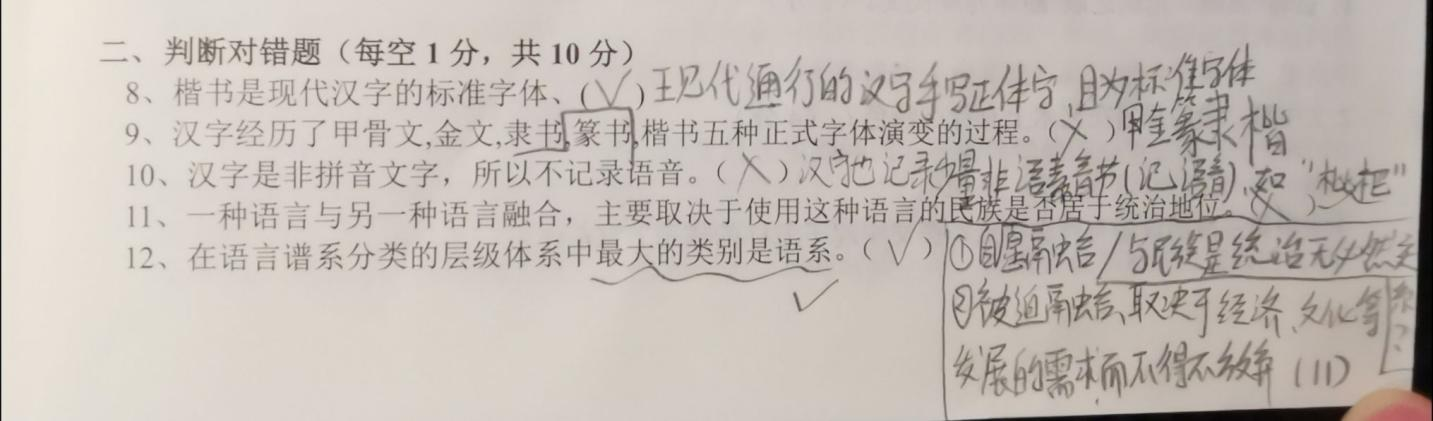 二、判断对错题（每空 1 分，共 10 分）
8、楷书是现代汉字的标准字体、(√) 现代通行的汉字手写正体字，且为标准字体
9、汉字经历了甲骨文,金文,隶书,篆书,楷书五种正式字体演变的过程。(X) 甲金篆隶楷
10、汉字是非拼音文字，所以不记录语音。(X) 汉字也记录少量非语素音节(记语音)，如“枇杷”
11、一种语言与另一种语言融合，主要取决于使用这种语言的民族是否居于统治地位。(X)
12、在语言谱系分类的层级体系中最大的类别是语系。(√)
√
①自愿融合/与民族是统治无必然关系?
②被迫融合、取决于经济、文化等
发展的需求而不得不放弃 (11)